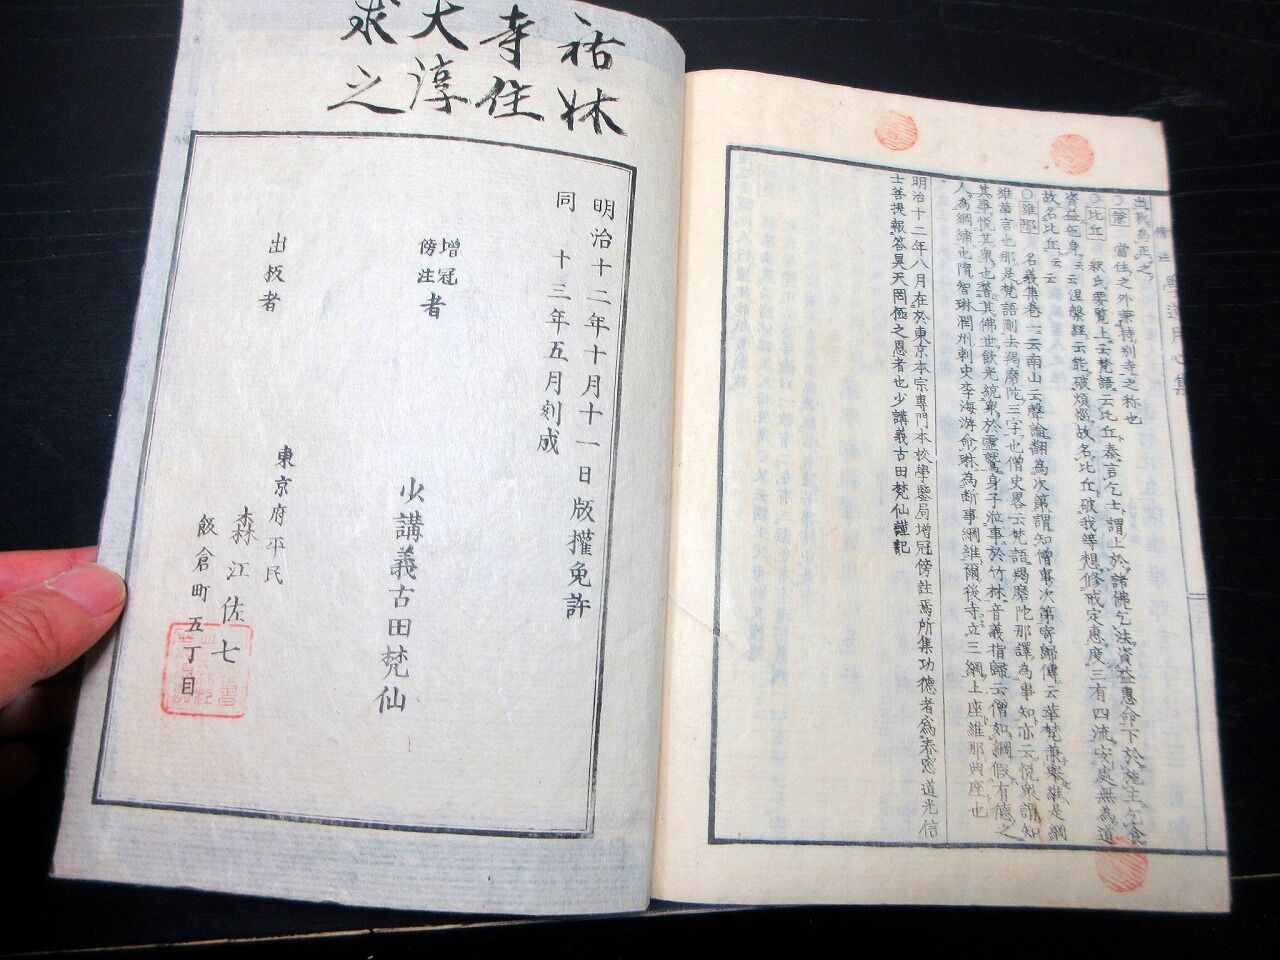 傍注 學道用心集
出軌為正之
○嘗 當住之外蕭特別寺之称也
○比丘 釈氏要覧上云梵語云比丘秦言乞士謂上於諸佛乞法資益惠命下於施主乞食
資益色身云云涅槃経云能破煩惱故名比丘破我等想修戒定惠度三有四流安處無為道
故名比丘云云
○維那 名義集巻一云南山云聲論翻為次第謂知僧事次第寄歸傳云華梵兼挙維是綱
維華言也那是梵語刪去羯磨陀三字也僧史畧云梵語羯磨陀那譯為事知亦云悦衆謂知
其事悦其衆也著其佛世飲光統衆於靈鷲身子涖事於竹林音義指歸云僧如綱假有徳之
人為綱縄也隋智琳潤州刺史李海游命琳為断事綱維爾後寺立三綱上座維那典座也
明治十二年八月在於東京本宗専門本校學鑒局増冠傍註焉所集功德者為春窓道光信
士菩提報答昊天罔極之恩者也少講義古田梵仙謹記
祐林
寺住
大淳
求之
明治十二年十月十一日版權免許
同 十三年五月刻成
増冠
傍注
者 少講義古田梵仙
出板者 東京府平民
森江佐七
飯倉町五丁目